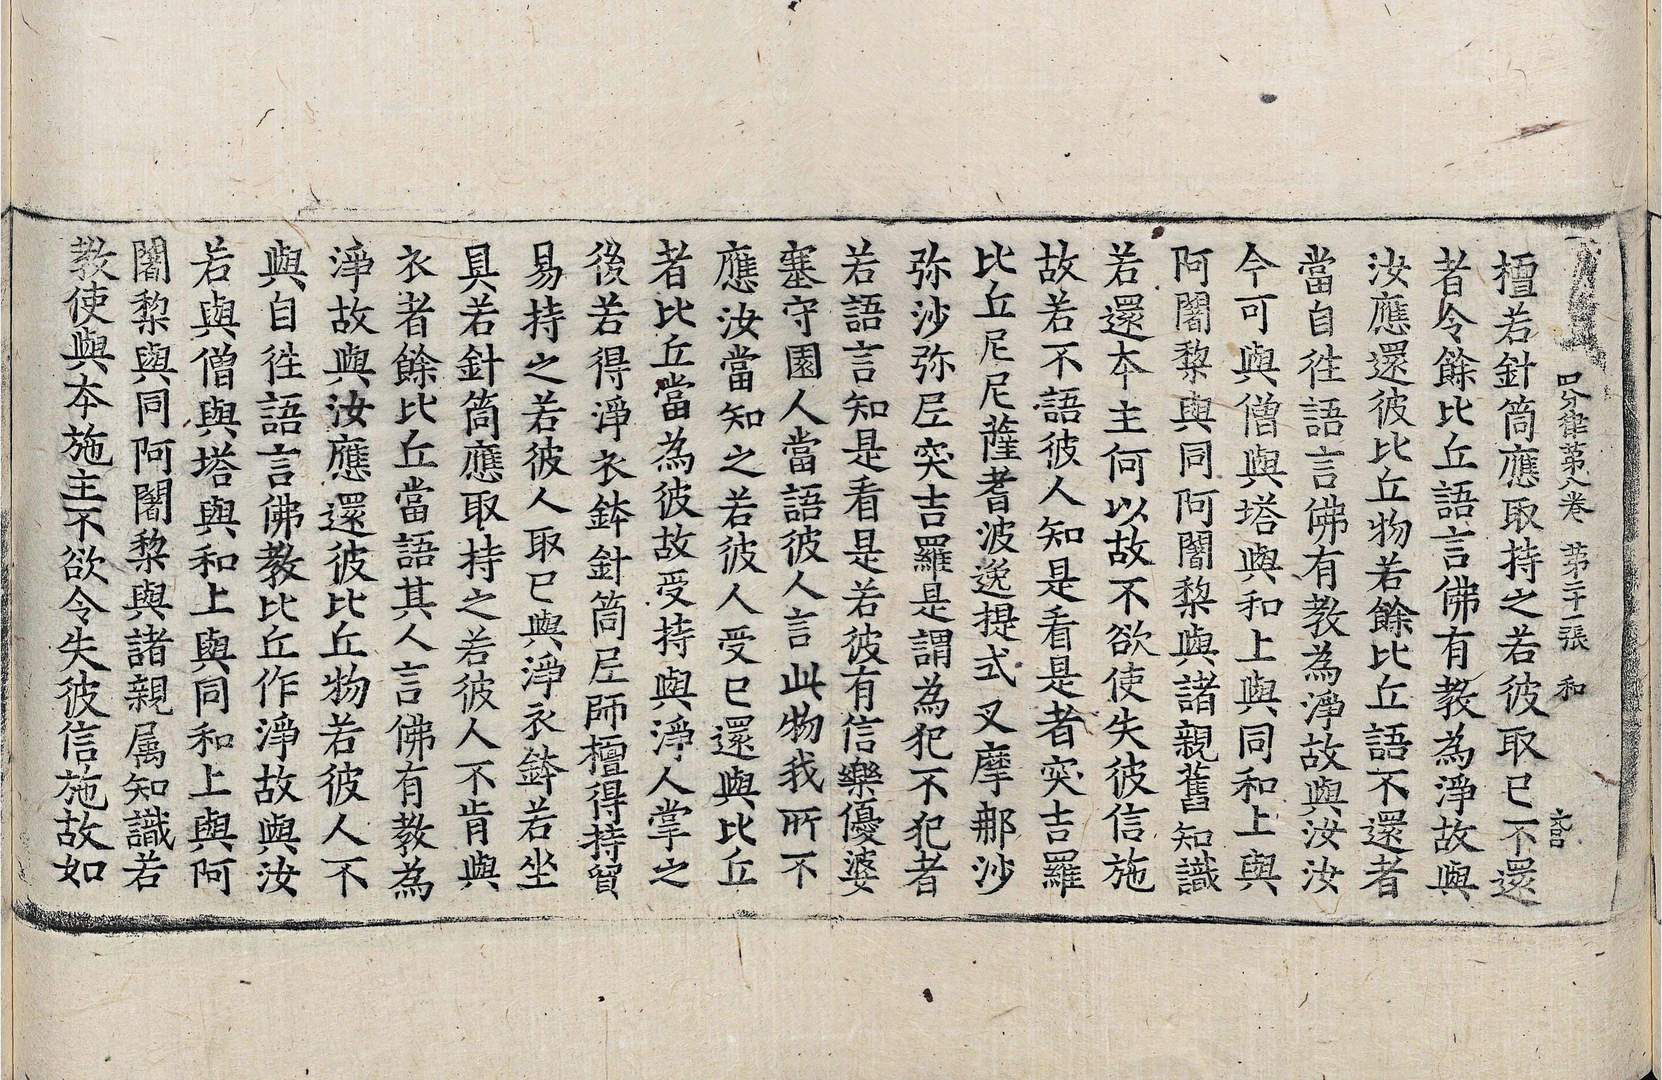 四分律第八卷 第二十一張 和
檀若針筒應取持之若彼取已不還
者令餘比丘語言佛有教為淨故與
汝應還彼比丘物若餘比丘語不還者
當自徃語言佛有教為淨故與汝汝
今可與僧與塔與和上與同和上與
阿闍黎與同阿闍黎與諸親舊知識
若還本主何以故不欲使失彼信施
故若不語彼人知是看是者突吉羅
比丘尼尼薩耆波逸提式叉摩那沙
弥沙弥尼突吉羅是謂為犯不犯者
若語言知是看是若彼有信樂優婆
塞守園人當語彼人言此物我所不
應汝當知之若彼人受已還與比丘
者比丘當為彼故受持與淨人掌之
後若得淨衣鉢針筒尼師檀得持貿
易持之若彼人取已與淨衣鉢若坐
具若針筒應取持之若彼人不肯與
衣者餘比丘當語其人言佛有教為
淨故與汝應還彼比丘物若彼人不
與自徃語言佛教比丘作淨故與汝
若與僧與塔與和上與同和上與阿
闍黎與同阿闍黎與諸親属知識若
教使與本施主不欲令失彼信施故如